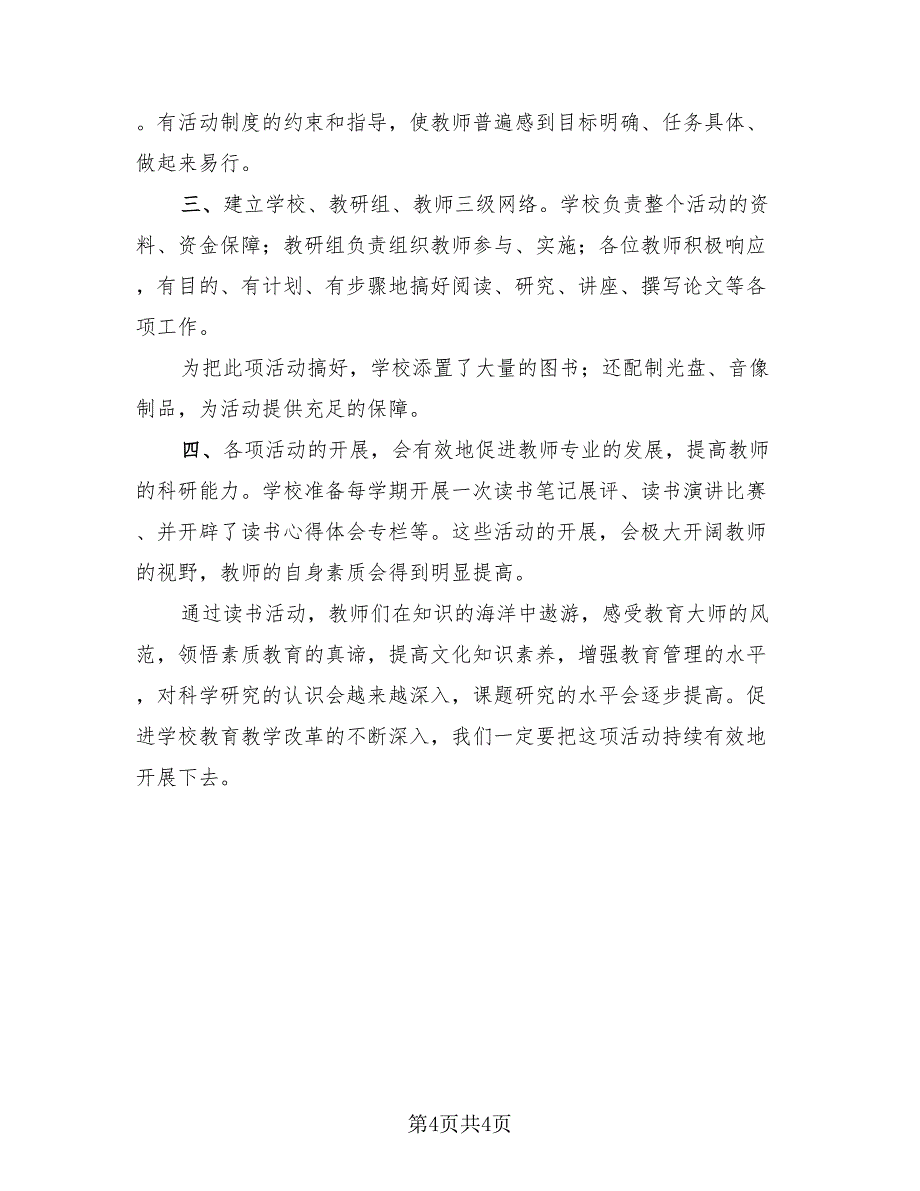 。有活动制度的约束和指导，使教师普遍感到目标明确、任务具体、
做起来易行。
三、建立学校、教研组、教师三级网络。学校负责整个活动的资
料、资金保障；教研组负责组织教师参与、实施；各位教师积极响应
，有目的、有计划、有步骤地搞好阅读、研究、讲座、撰写论文等各
项工作。
为把此项活动搞好，学校添置了大量的图书；还配制光盘、音像
制品，为活动提供充足的保障。
四、各项活动的开展，会有效地促进教师专业的发展，提高教师
的科研能力。学校准备每学期开展一次读书笔记展评、读书演讲比赛
、并开辟了读书心得体会专栏等。这些活动的开展，会极大开阔教师
的视野，教师的自身素质会得到明显提高。
通过读书活动，教师们在知识的海洋中遨游，感受教育大师的风
范，领悟素质教育的真谛，提高文化知识素养，增强教育管理的水平
，对科学研究的认识会越来越深入，课题研究的水平会逐步提高。促
进学校教育教学改革的不断深入，我们一定要把这项活动持续有效地
开展下去。
第4页共4页